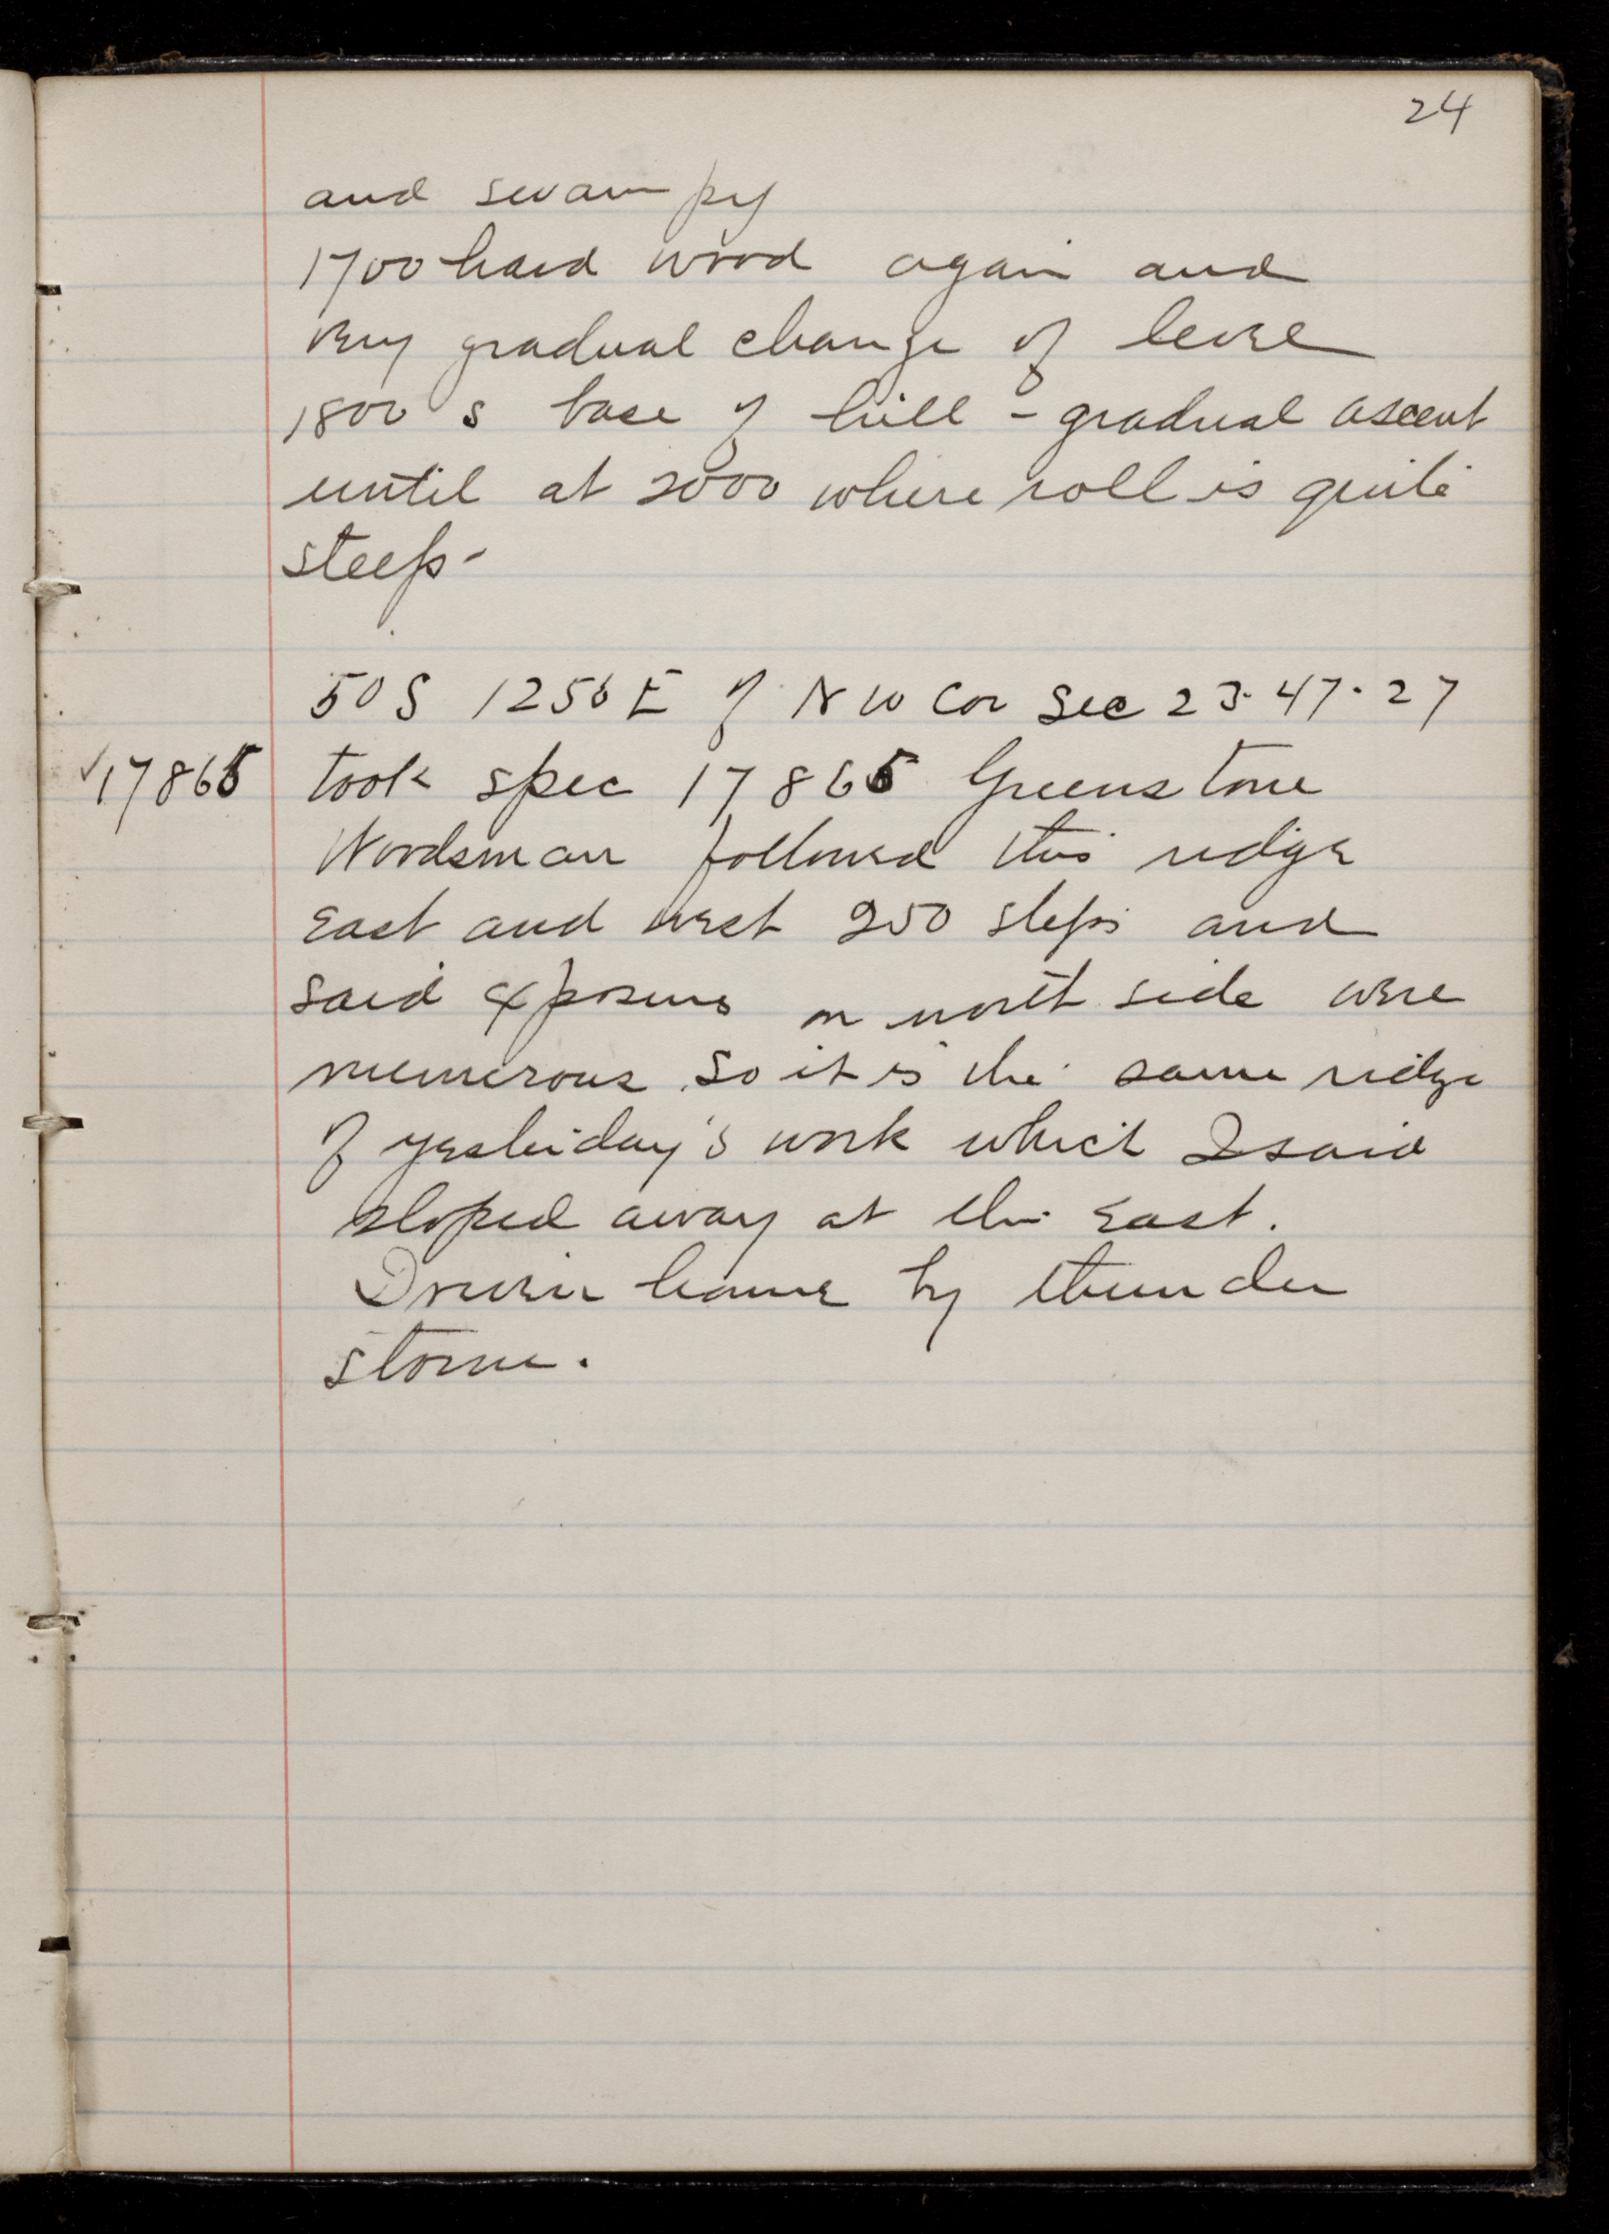 24
and swampy
1700 hard wood again and
very gradual change of level
1800 s base of hill - gradual ascent
until at 2000 where roll is quite
steep -
50 S 1250 E of N W Cor Sec 23. 47. 27
✓17865 took spec 17865 Greenstone
Woodsman followed this ridge
East and west 250 steps and
said exposures on north side were
numerous so it is the same ridge
of yesterday's work which I said
sloped away at the East.
Driven home by thunder
storm.